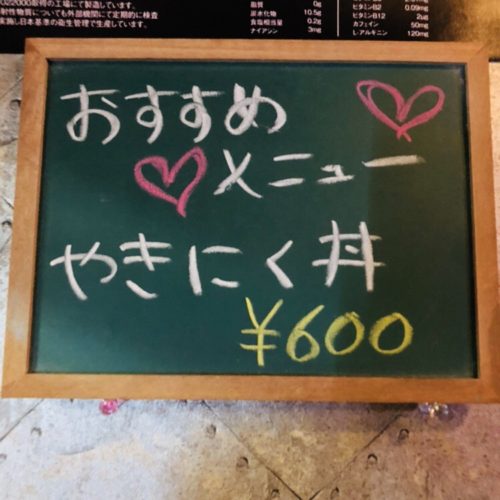 022000取得の工場にて製造しています。
射性物質についても外部機関にて定期的に検査
実施し日本基準の衛生管理で生産しています。
脂質 0g
炭水化物 10.5g
食塩相当量 0.2g
ナイアシン 3mg
ビタミンB2 0.09mg
ビタミンB12 2μg
カフェイン 50mg
L-アルギニン 120mg
おすすめ
メニュー
やきにく丼
¥600